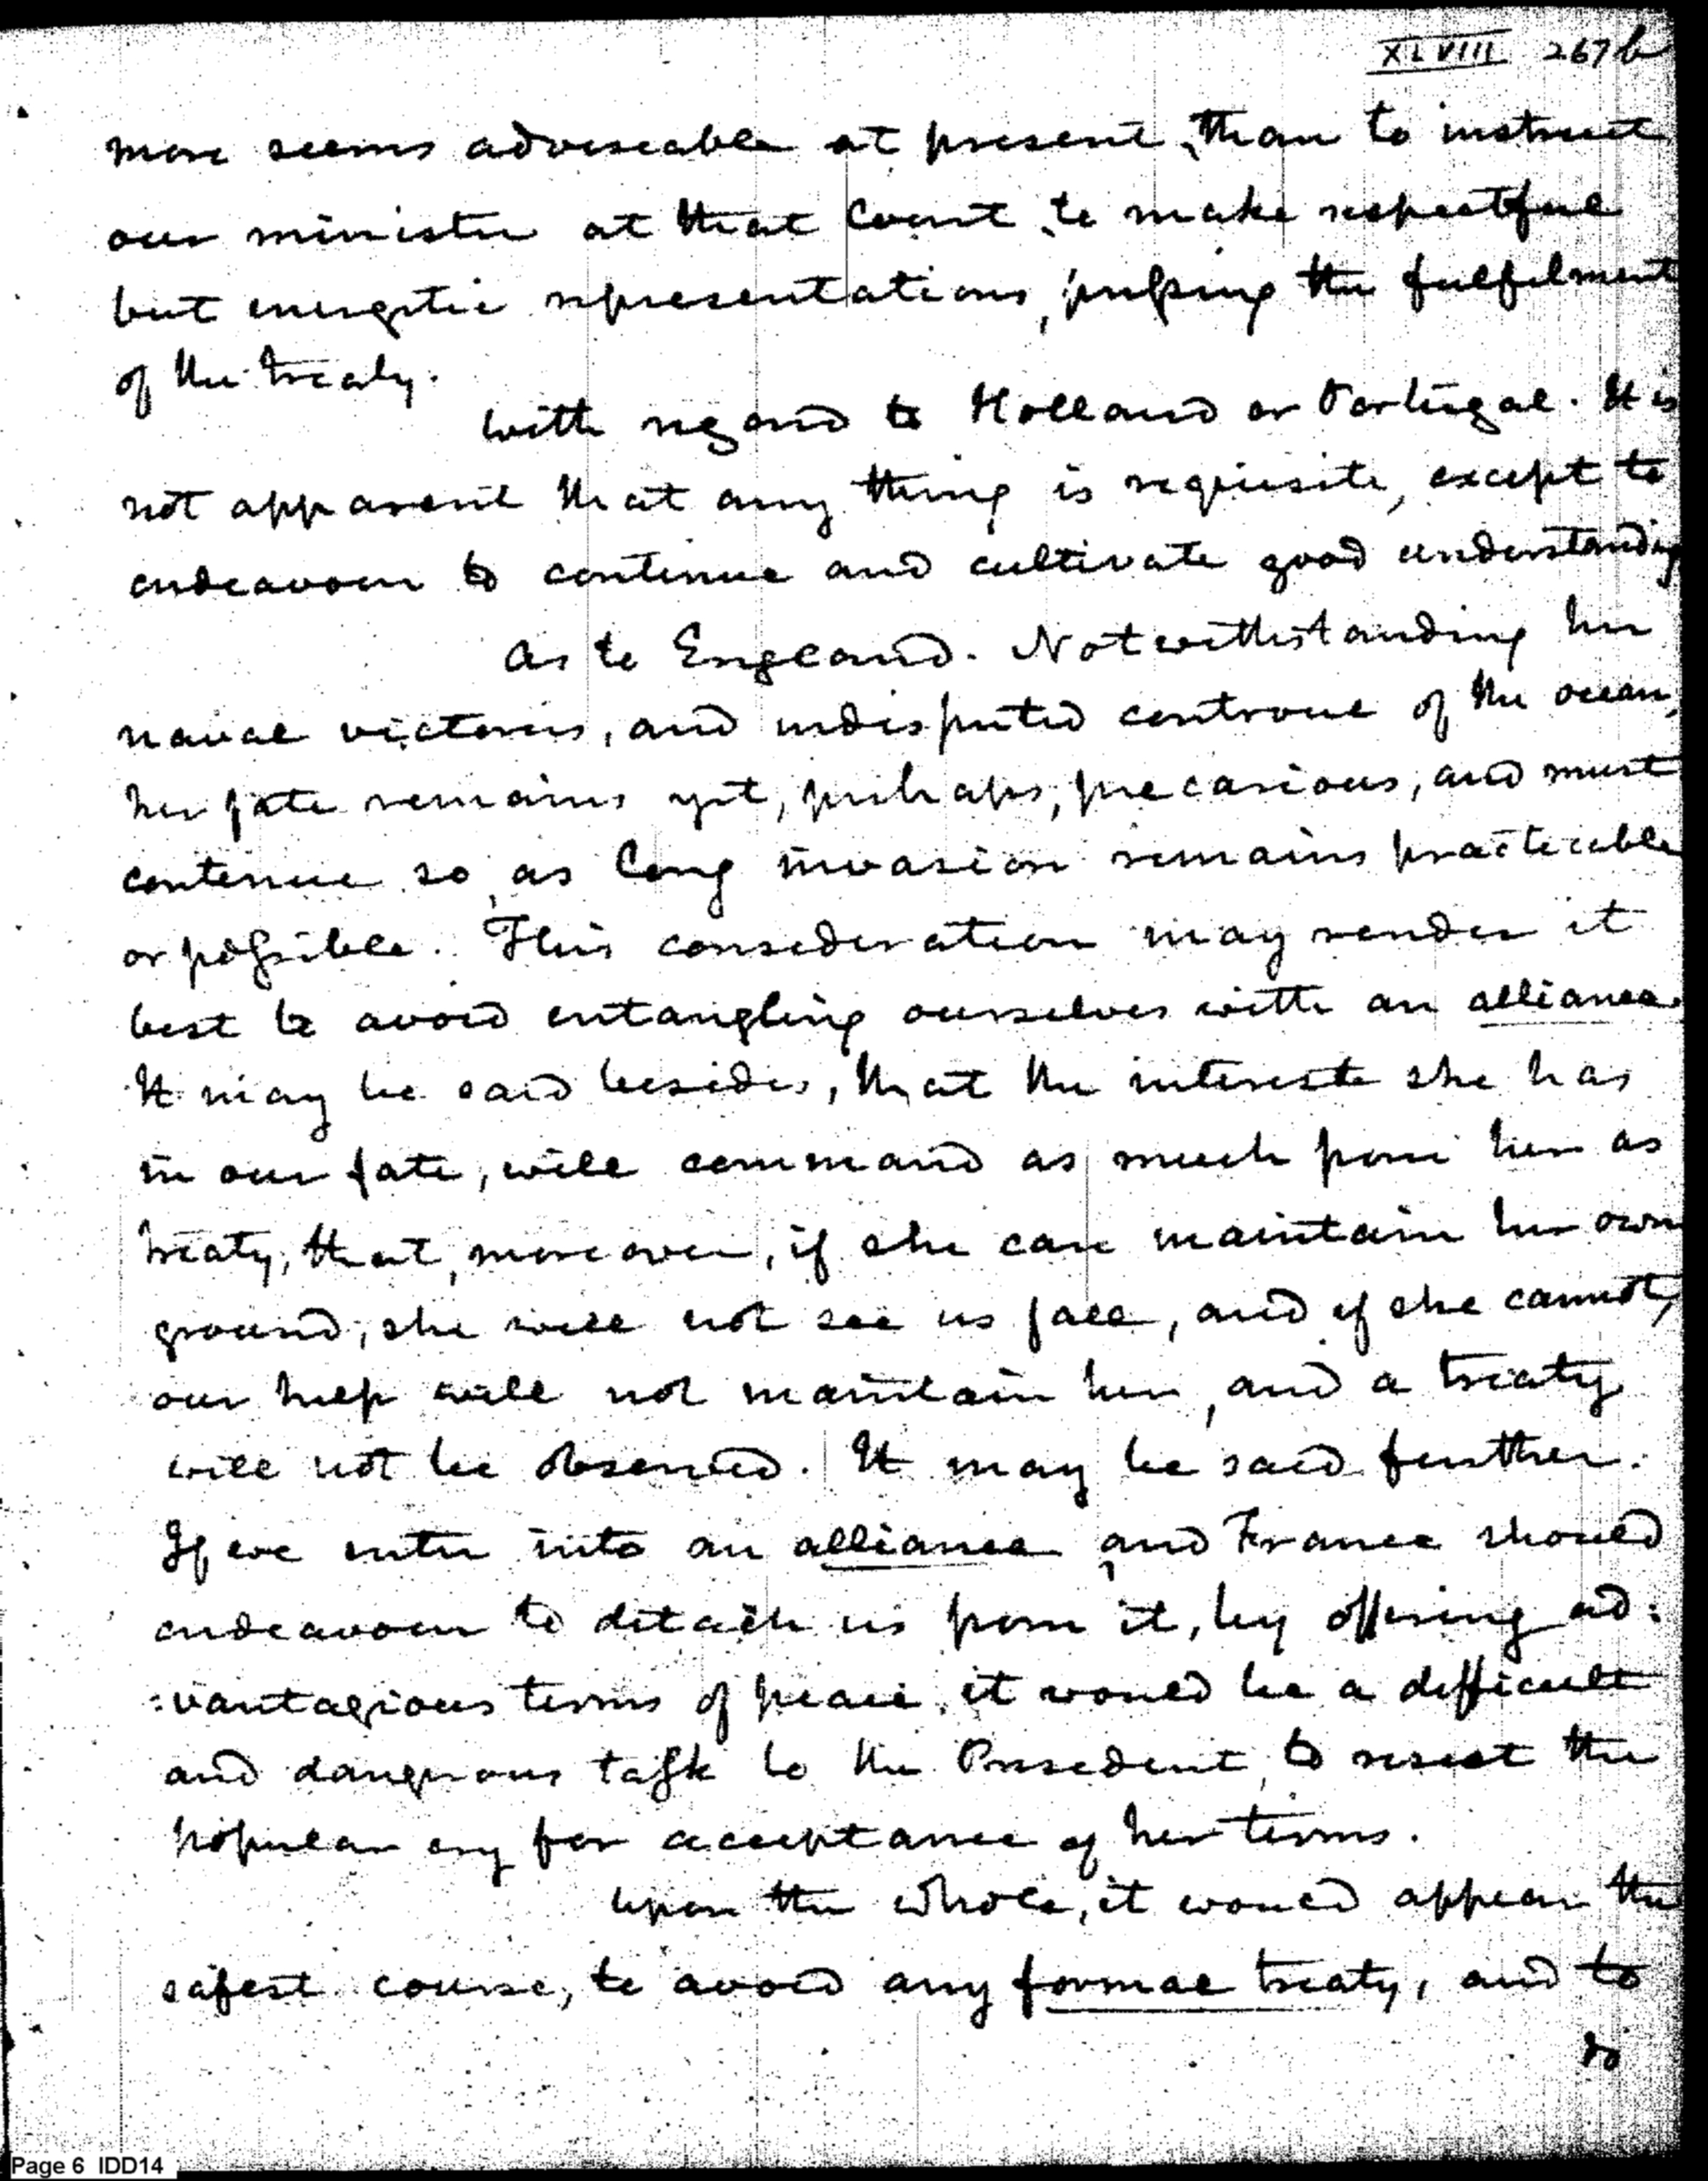 XLVIII 267 b
more seems adviseable at present, than to instruct
our minister at that Court, to make respectful
but energetic representations, pressing the fulfilment
of the treaty.
With regard to Holland or Portugal. It is
not apparent that any thing is requisite, except to
endeavour to continue and cultivate good understanding
As to England. Notwithstanding her
naval victories, and undisputed controul of the ocean,
her fate remains yet, perhaps, precarious, and must
continue so, as long invasion remains practicable
or possible. This consideration may render it
best to avoid entangling ourselves with an alliance.
It may be said besides, that the interest she has
in our fate, will command as much from her as
treaty, that, moreover, if she can maintain her own
ground, she will not see us fall, and if she cannot,
our help will not maintain her, and a treaty
will not be observed. It may be said further.
If we enter into an alliance and France should
endeavour to detach us from it, by offering ad:
:vantagious terms of peace, it would be a difficult
and dangerous task to the President, to resist the
popular cry for acceptance of her terms.
Upon the whole, it would appear the
safest course, to avoid any formal treaty, and to
do
Page 6 IDD14